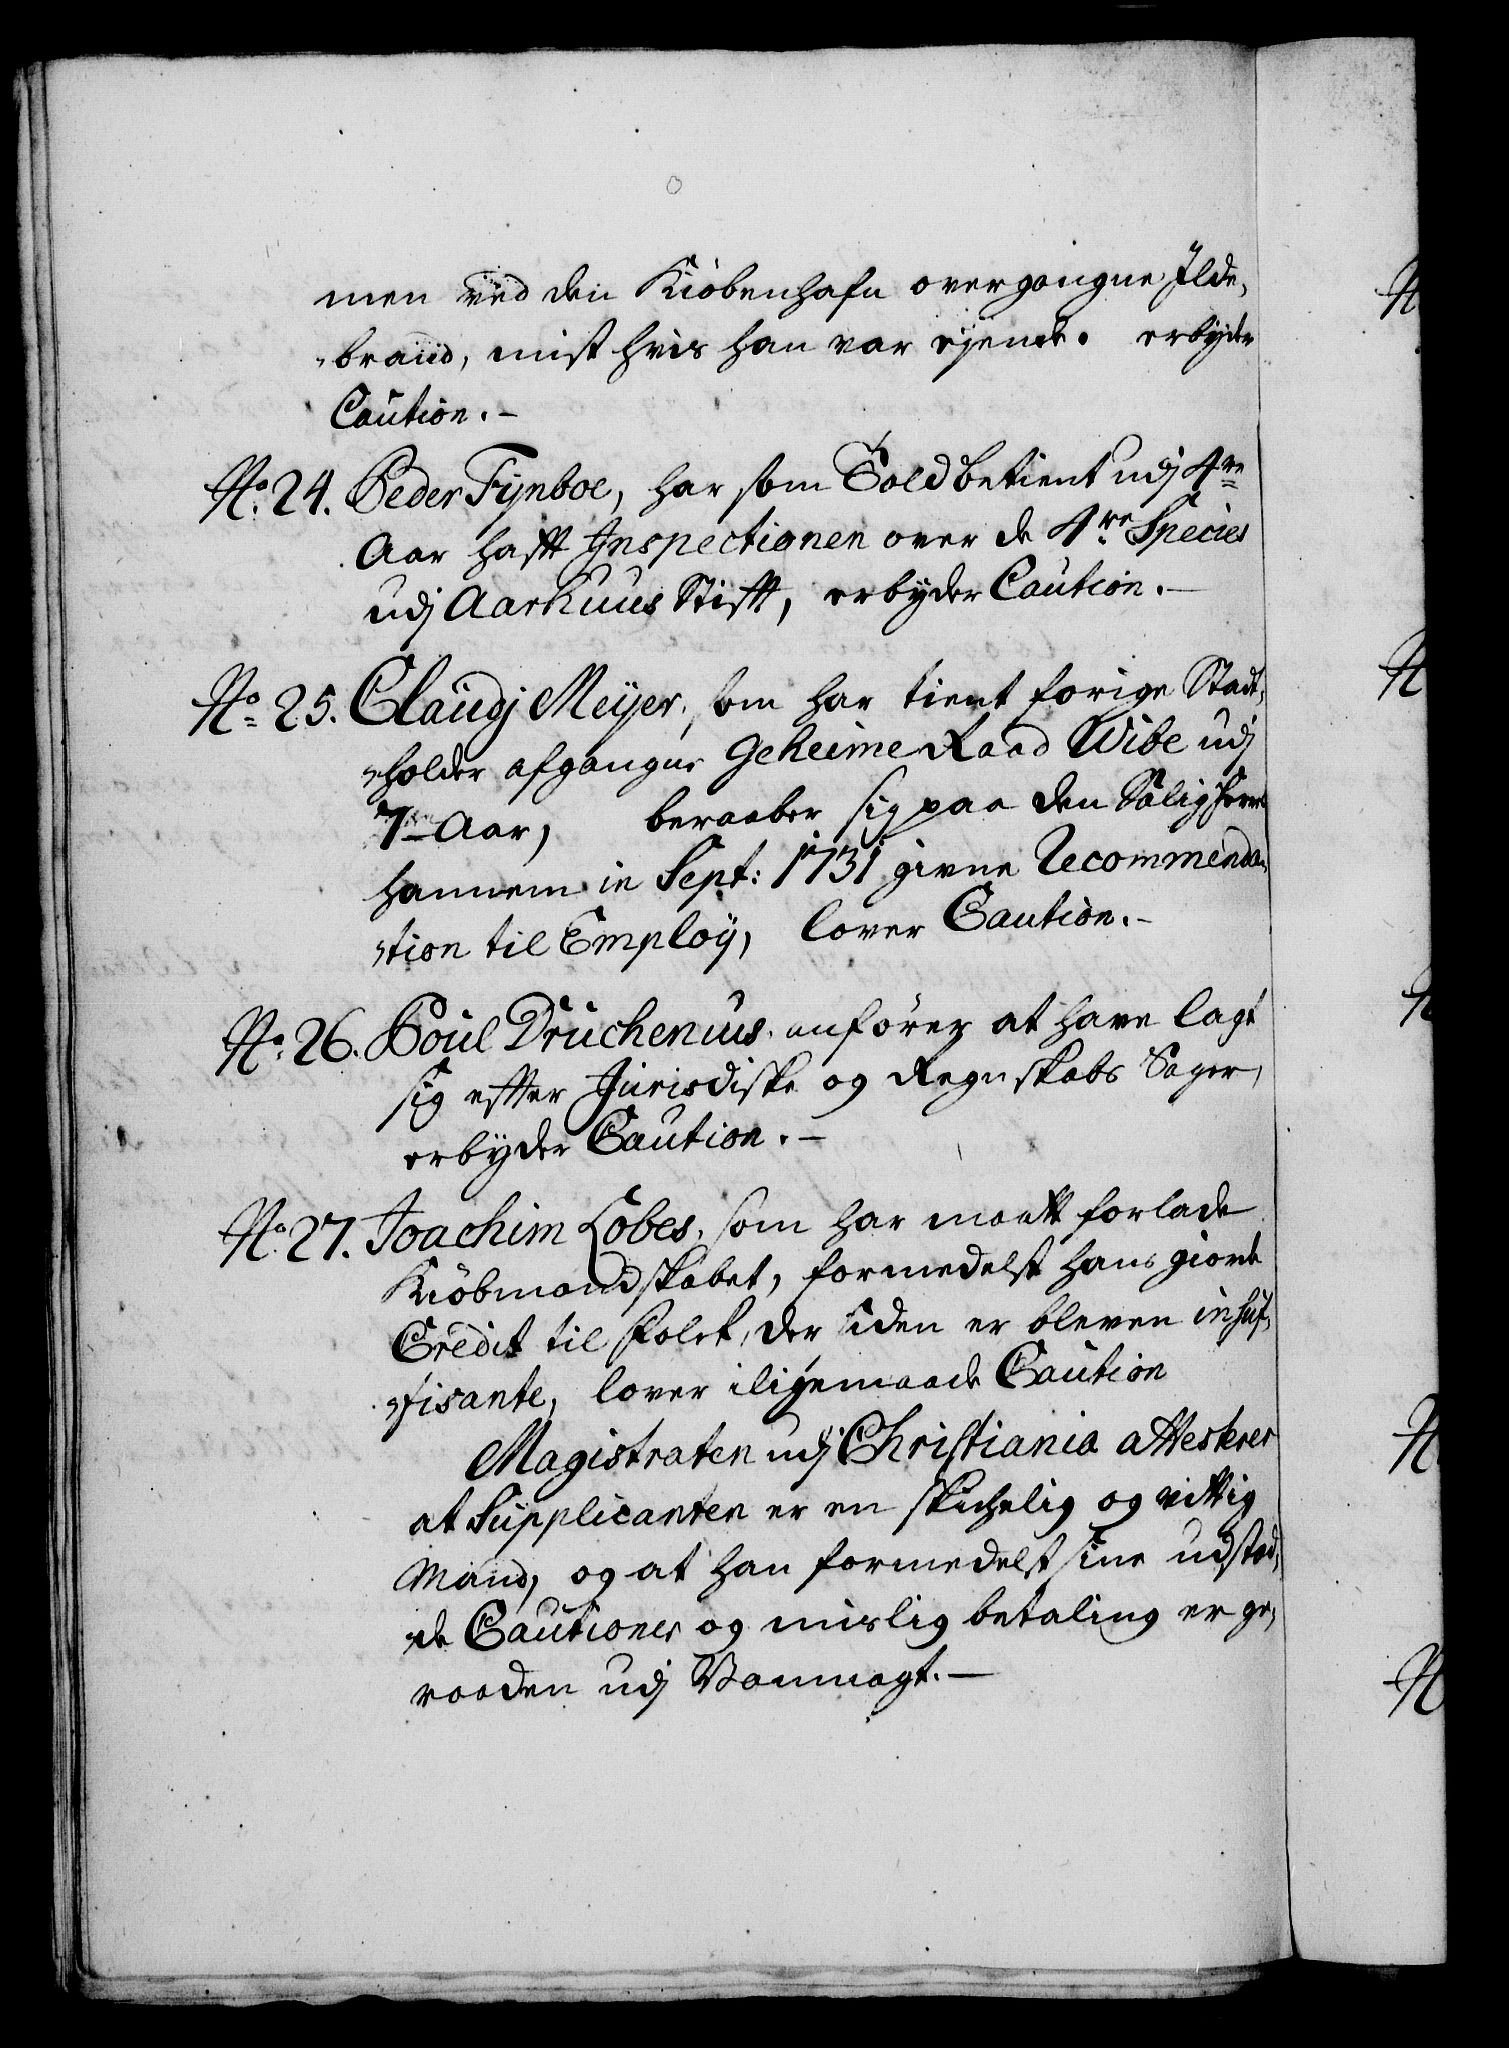 men ved den Kiöbenhafn overgangne Ilde,
brand, mist hvis han var ejende. erbyder
Caution.-
No 24. Peder Fynboe, har som Toldbetient udj 4re
Aar hafft Inspectionen over de 4re Species
udj Aarhuus Stifft, erbyder Caution.-
No 25. Claudj Meyer, som har tient forige Stadt,
holder afgangne Geheime Raad Wibe udj
7 Aar, beraaber sig paa den Salig Herre
hannem in Sept: 1731 givne Recommenda,
tion til Employ, lover Caution.-
No 26. Poul Druchenius, anfører at have lagt
sig effter Jurisdiske og Regnskabs Sager,
erbyder Caution.-
No 27. Joachim Lobes, som har maatt forlade
Kiöbmandskabet, formedelst hans giorde
Credit til folck, der siden er bleven insuf,
fisante, lover iligemaade Caution
Magistraten udj Christiania attesterer
at Supplicanten er en skichelig og vittig
Mand, og at han formedelst sine udstæd,
de Cautioner og mislig betaling er ge,
raaden udj Vanmagt.-